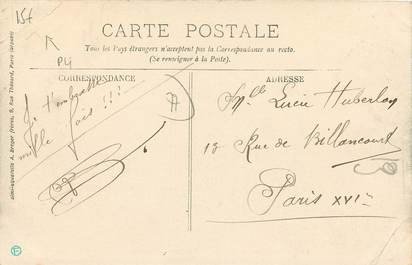 15f
P4
CARTE POSTALE
Tous les Pays étrangers n'acceptent pas la Correspondance au recto.
(Se renseigner à la Poste).
CORRESPONDANCE
Je t'embrasse
mille fois !!!
ADRESSE
Mlle Lucie Huberlay
13 Rue de Billancourt
Paris XVIe